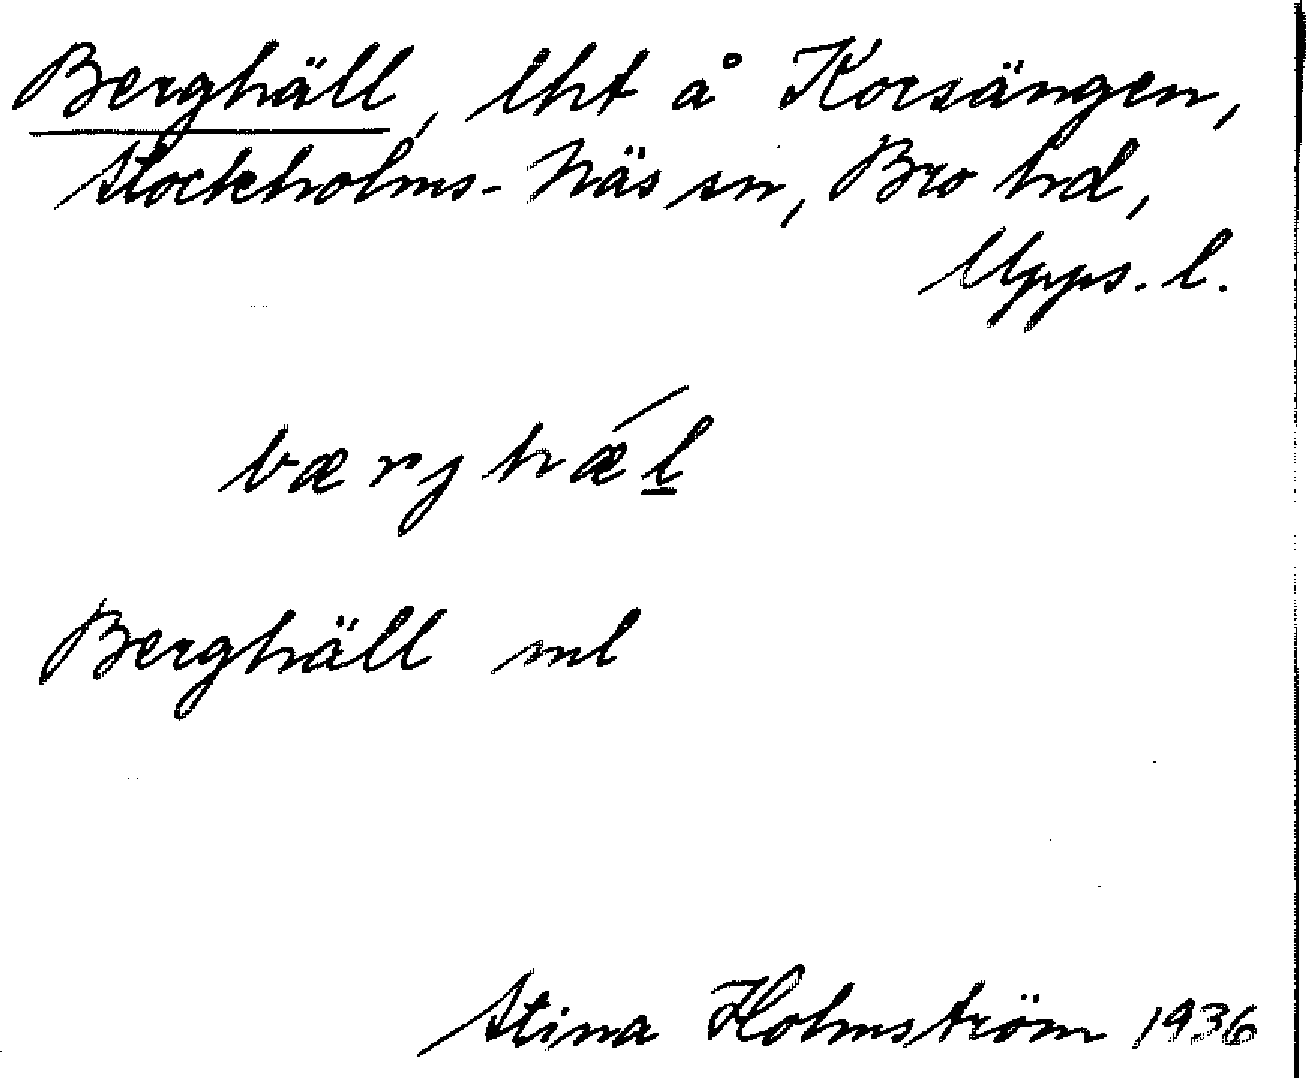 Berghäll, lht å Korsängen,
Stockholms-Näs sn, Bro hd,
Upps. l.
bærjhǽl̲
Berghäll ml
Stina Holmström 1936